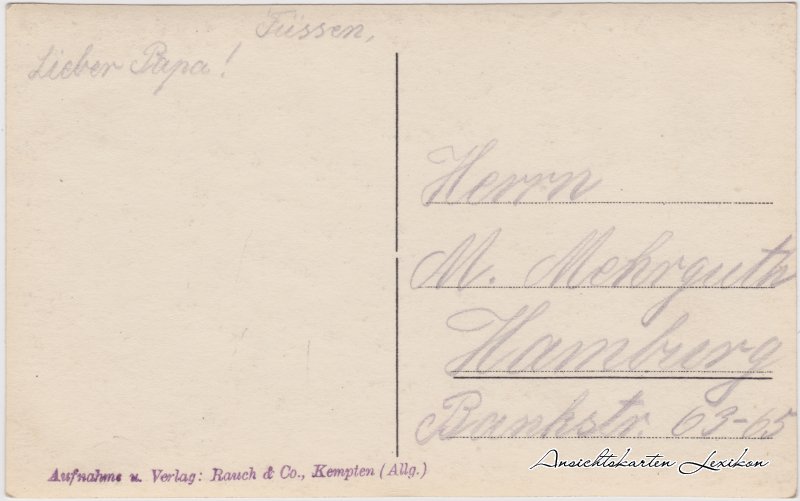 Füssen,
Lieber Papa!
Herrn
M. Mehrguth
Hamburg
Bankstr. 63-65
Aufnahme u. Verlag: Rauch & Co., Kempten (Allg.)
Ansichtskarten Lexikon